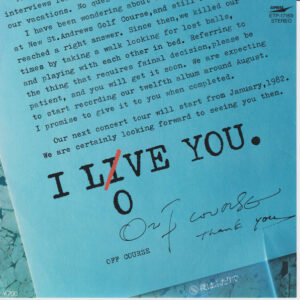 interviews
our vacations. No
I have been wondering about
at New St.Andrews Golf Course,and still
reached a right answer. Since then,we killed our
times by taking a walk looking for lost balls,
and playing with each other in bed. Referring to
the thing that requires fainal decision,please be
patient, and you will get it soon. We are expecting
to start recording our twelfth album around August.
I promise to give it to you when completed.
Our next concert tour will start from January,1982.
We are certainly looking forward to seeing you then.
I LIVE YOU.
O
OFF COURSE
thank you
OFF COURSE
STEREO
¥700